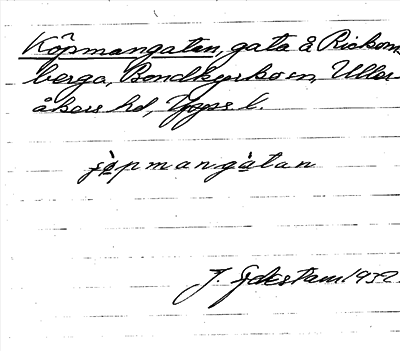 Köpmangatan, gata å Rickom
berga, Bondkyrko sn, Uller
åkers hd, Upps l.
jö̀pmangàtan
J. Sahlstam 1932